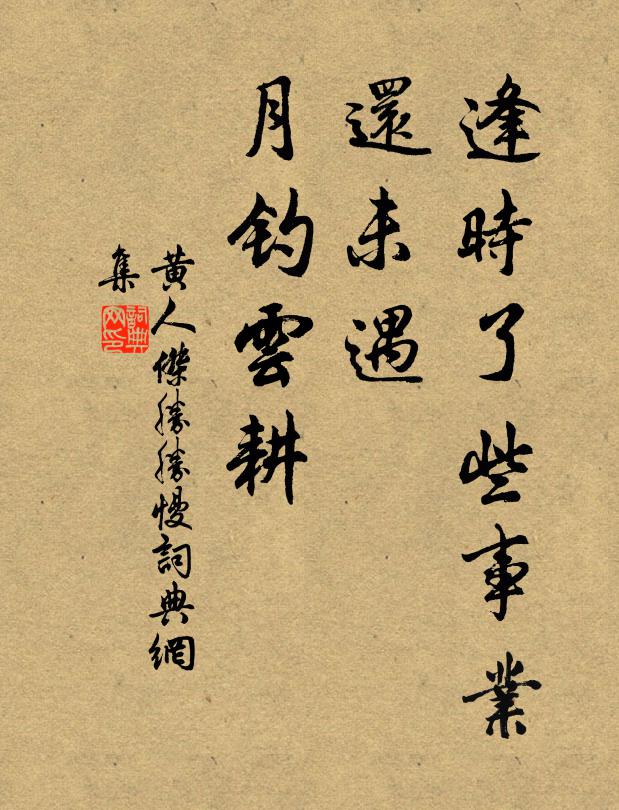 逢時了些事業
還未遇
月釣雲耕
黄人傑勝勝慢詞典網
集
詞典
网印